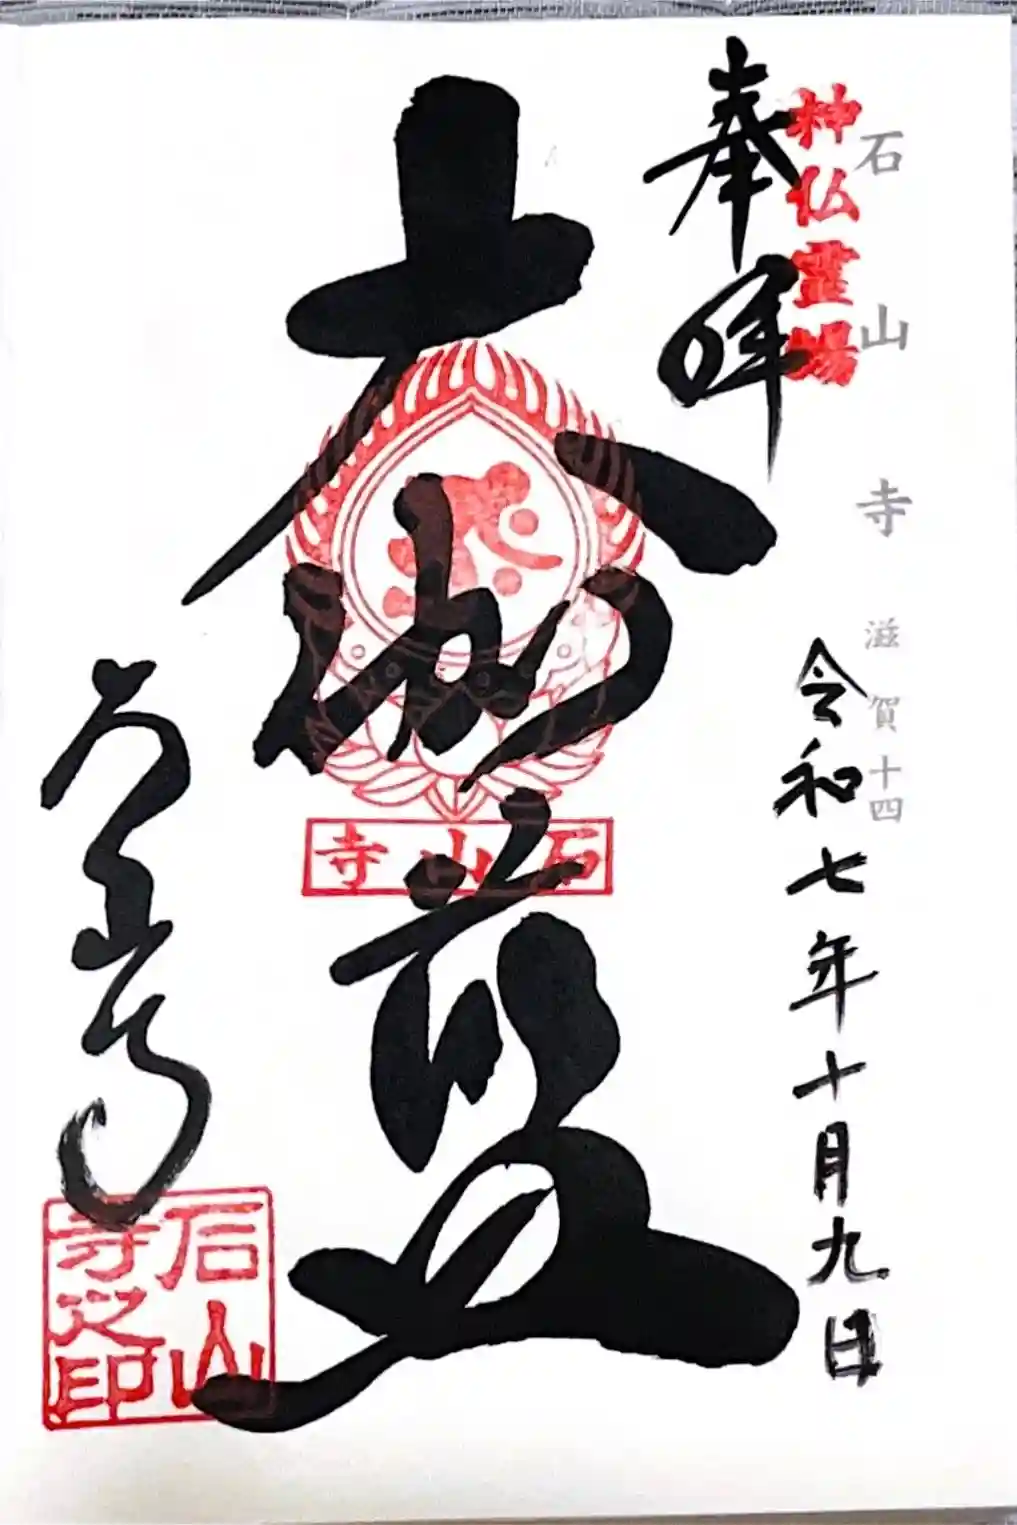 石山寺 滋賀十四
神仏霊場
奉拝
令和七年十月九日
大伽藍
石山寺
石山寺
石山寺之印